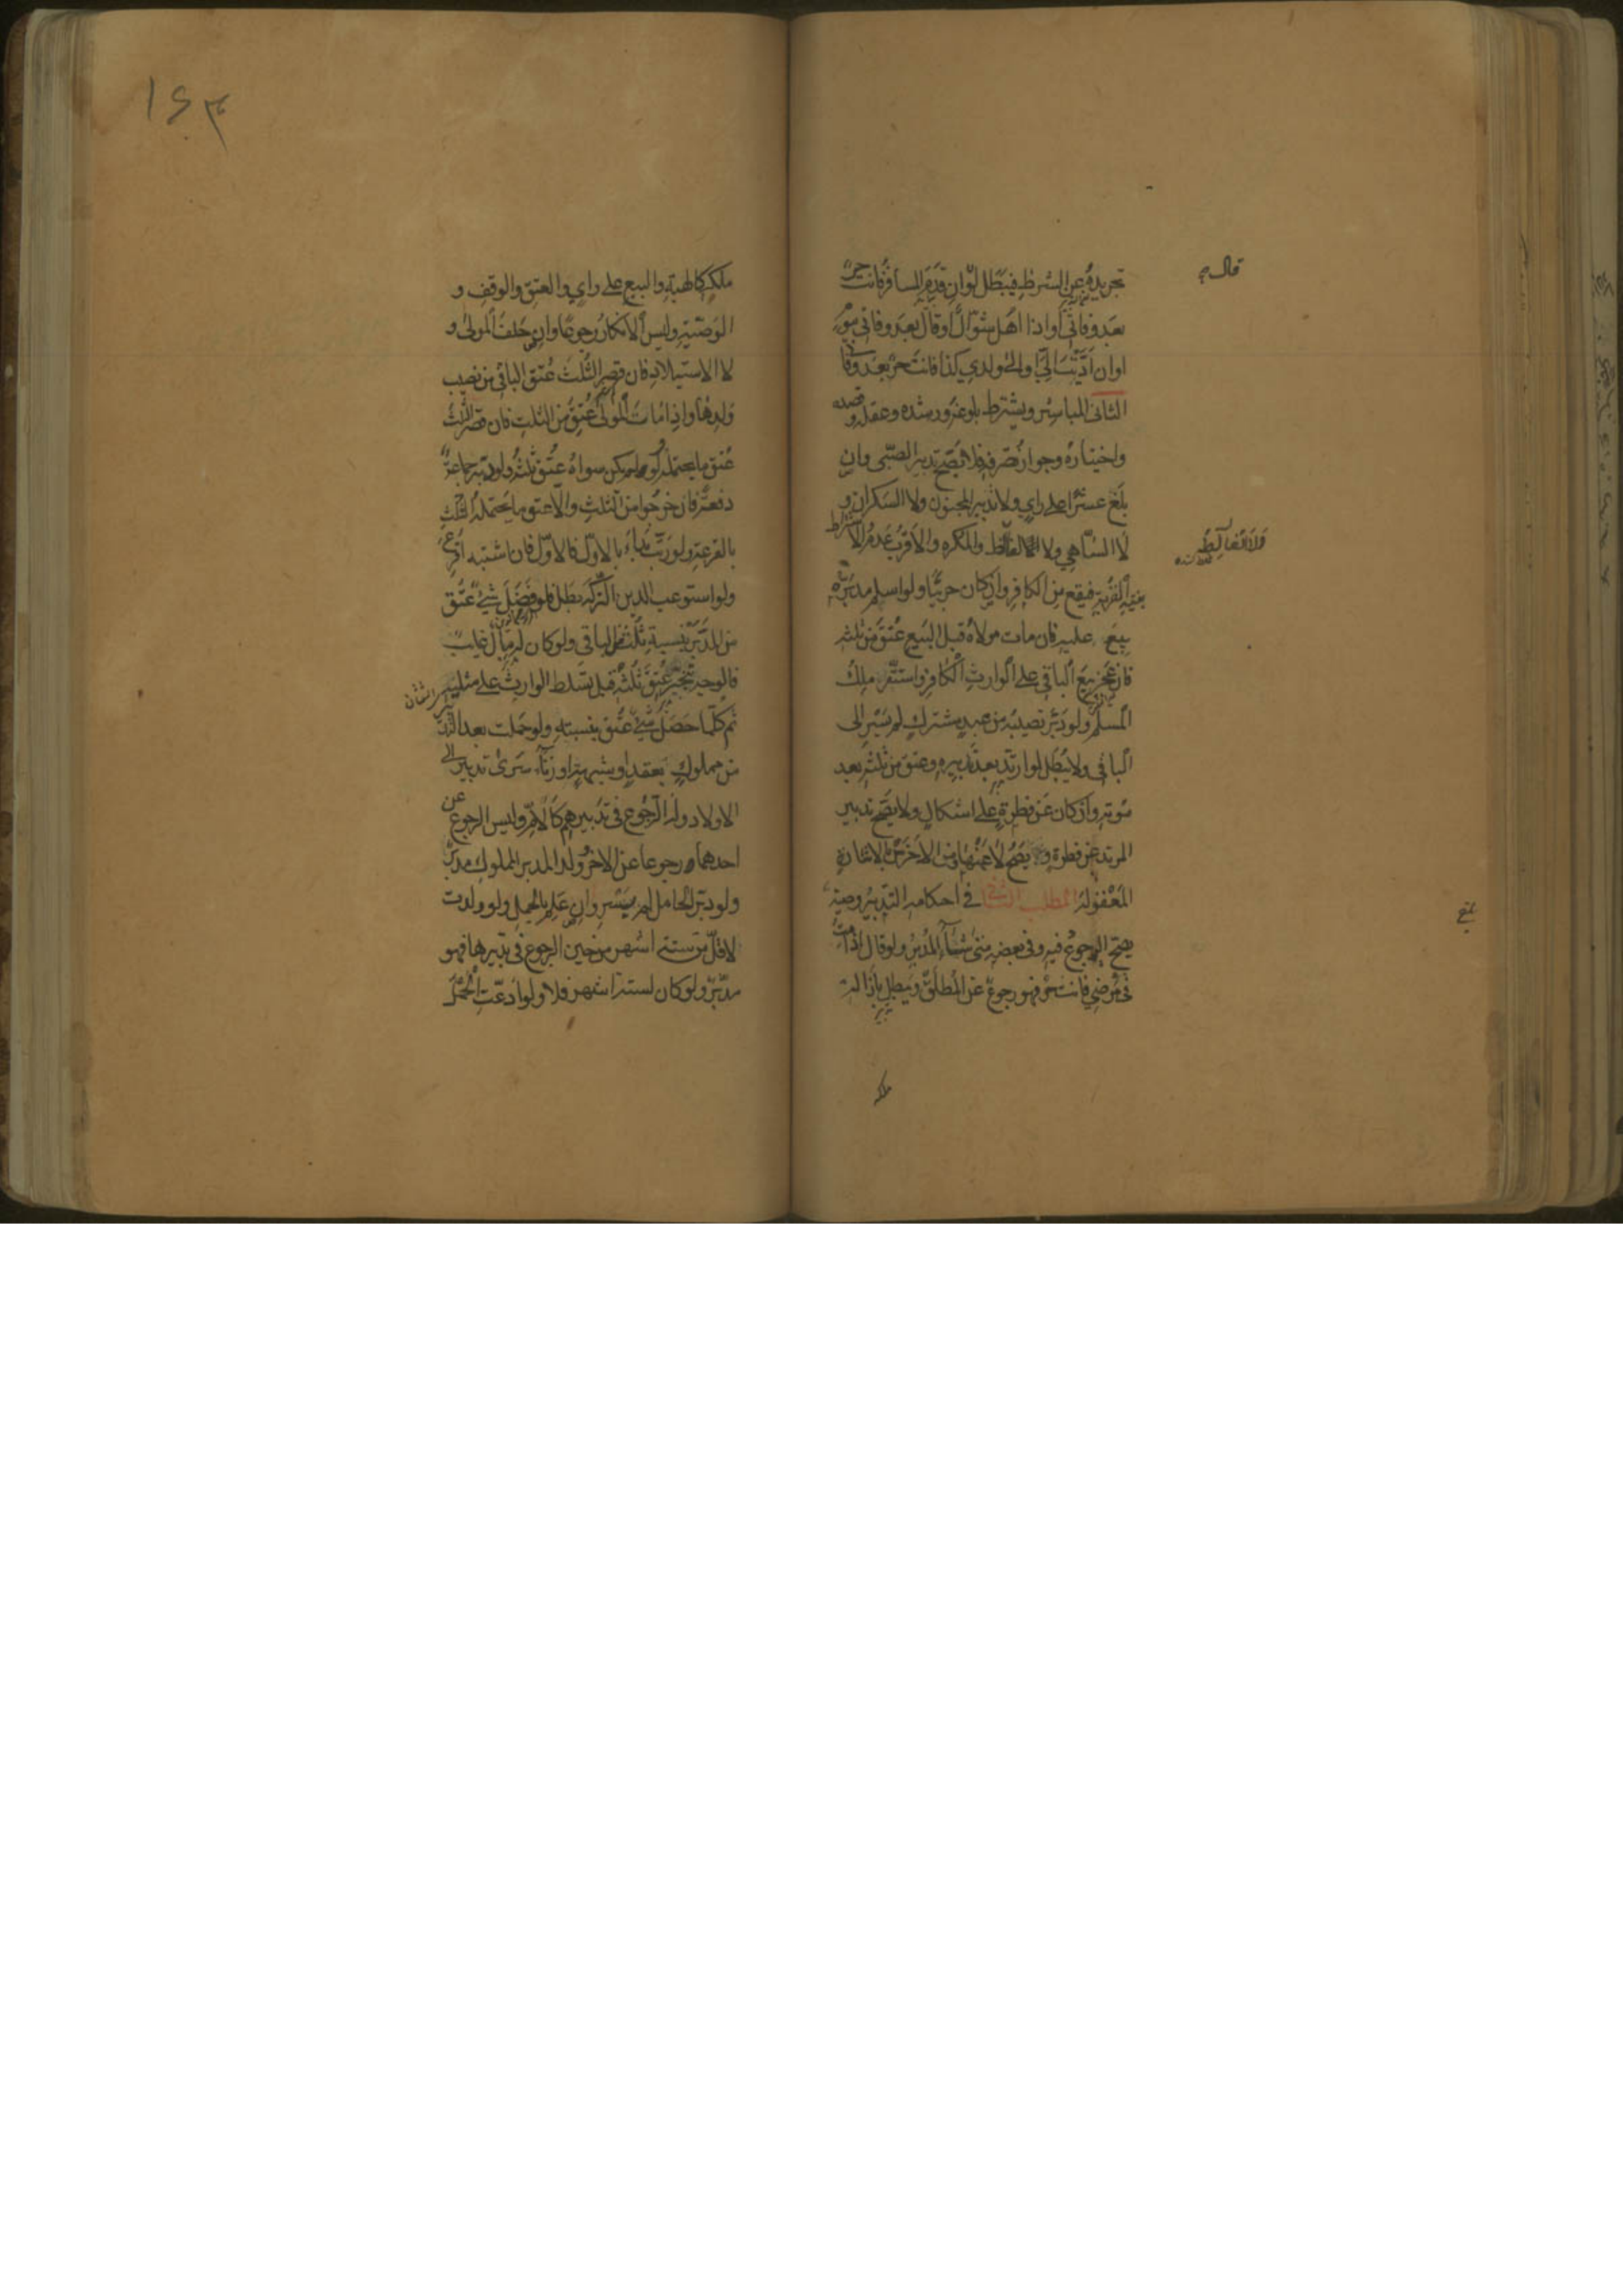 تجريده عن الشرط فيبطل لو ان قدم المسافر فانت حر
بعد وفاتي او اذا اهل شوال او قال بعد وفاتي
او ان اديت الي او الى ولدي كذا فانت حر بعد وفا
الثاني المباشر ويشترط بلوغه ورشده وعقله وقصده
واختياره وجواز تصرفه فلا يصح تدبير الصبي وان
بلغ عشرا على راي ولا تدبير المجنون ولا السكران و
لا الساهي ولا الغالط والمكره والاقرب عدم الاشتراط
بنية القربة فيقع من الكافر وان كان حربيا ولو اسلم مدبره
بيع عليه فان مات مولاه قبل البيع عتق من ثلثه
فان عجز بيع الباقي على الوارث الكافر واستقر ملك
المسلم ولو دبر نصيبه من عبد مشترك لم يسر الى
الباقي ولا يبطل لو ارتد بعد تدبيره وعتق من ثلثه بعد
موته وان كان عن فطرة على اشكال ولا يصح تدبير
المرتد عن فطرة و يصح لا عنها ومن الاخرس بالاشارة
المعقولة المطلب الثاني في احكامه التدبير وصية
يصح الرجوع فيه وفي بعضه متى شاء المدبر ولو قال اذا مت
في مرضي فانت حر فهو رجوع عن المطلق ويبطل بازالة
ملكه
ملكه كالهبة والبيع على راي والعتق والوقف و
الوصية وليس الانكار رجوعا وان حلف المولى و
لا الاستيلاد فان قصر الثلث عتق الباقي من نصيب
ولدها واذا مات المولى عتق من الثلث فان قصر الثلث
عتق ما يحتمله ولو لم يكن سواه عتق ثلثه ولو دبر جماعة
دفعة فان خرجوا من الثلث والا عتق ما يحتمله الثلث
بالقرعة ولو رتب بداء بالاول فالاول فان اشتبه اقرع
ولو استوعب الدين التركة بطل فلو فضل شيء عتق
من المدبر بنسبة ثلث الباقي ولو كان له مال غايب
فالوجه تنجيز عتق ثلثه قبل تسلط الوارث على مثليه
ثم كلما حصل شيء عتق بنسبته ولو حملت بعد التدبير
من مملوك بعقد او شبهة او زناء سرى تدبير الى
الاولاد وله الرجوع في تدبيرهم كالام وليس الرجوع عن
احدهما رجوعا عن الاخر وولد المدبر المملوك مدبر
ولو دبر الحامل لم يسر وان علم بالحمل ولو ولدت
لاقل من ستة اشهر من حين الرجوع في تدبيرها فهو
مدبر ولو كان لستة اشهر فلا ولو ادعت الحمل